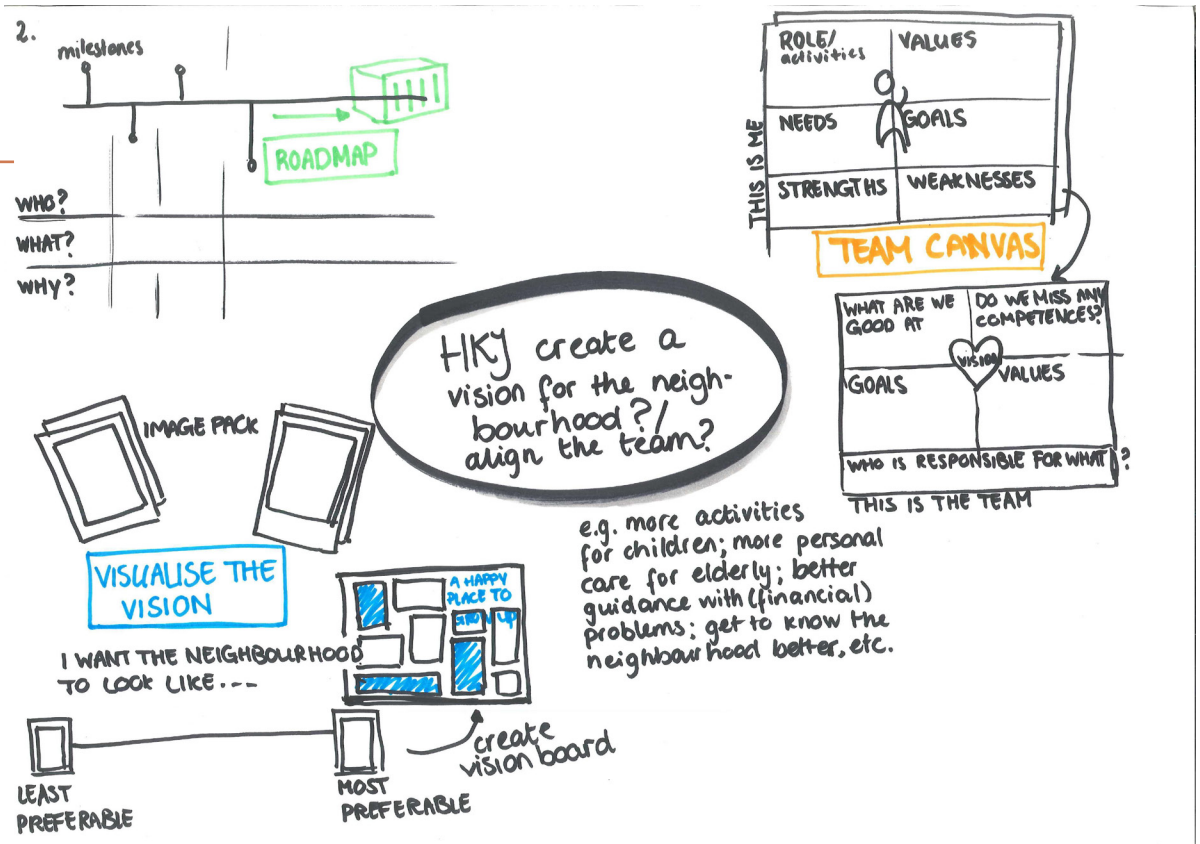 2.
milestones
ROADMAP
WHO?
WHAT?
WHY?
ROLE/
activities
VALUES
NEEDS
GOALS
STRENGTHS
WEAKNESSES
THIS IS ME
TEAM CANVAS
WHAT ARE WE
GOOD AT
DO WE MISS ANY
COMPETENCES?
VISION
GOALS
VALUES
WHO IS RESPONSIBLE FOR WHAT?
THIS IS THE TEAM
HKJ create a
vision for the neigh-
bourhood?/
align the team?
e.g. more activities
for children; more personal
care for elderly; better
guidance with (financial)
problems; get to know the
neighbourhood better, etc.
IMAGE PACK
VISUALISE THE
VISION
I WANT THE NEIGHBOURHOOD
TO LOOK LIKE...
A HAPPY
PLACE TO
GROW UP
create
vision board
LEAST
PREFERABLE
MOST
PREFERABLE